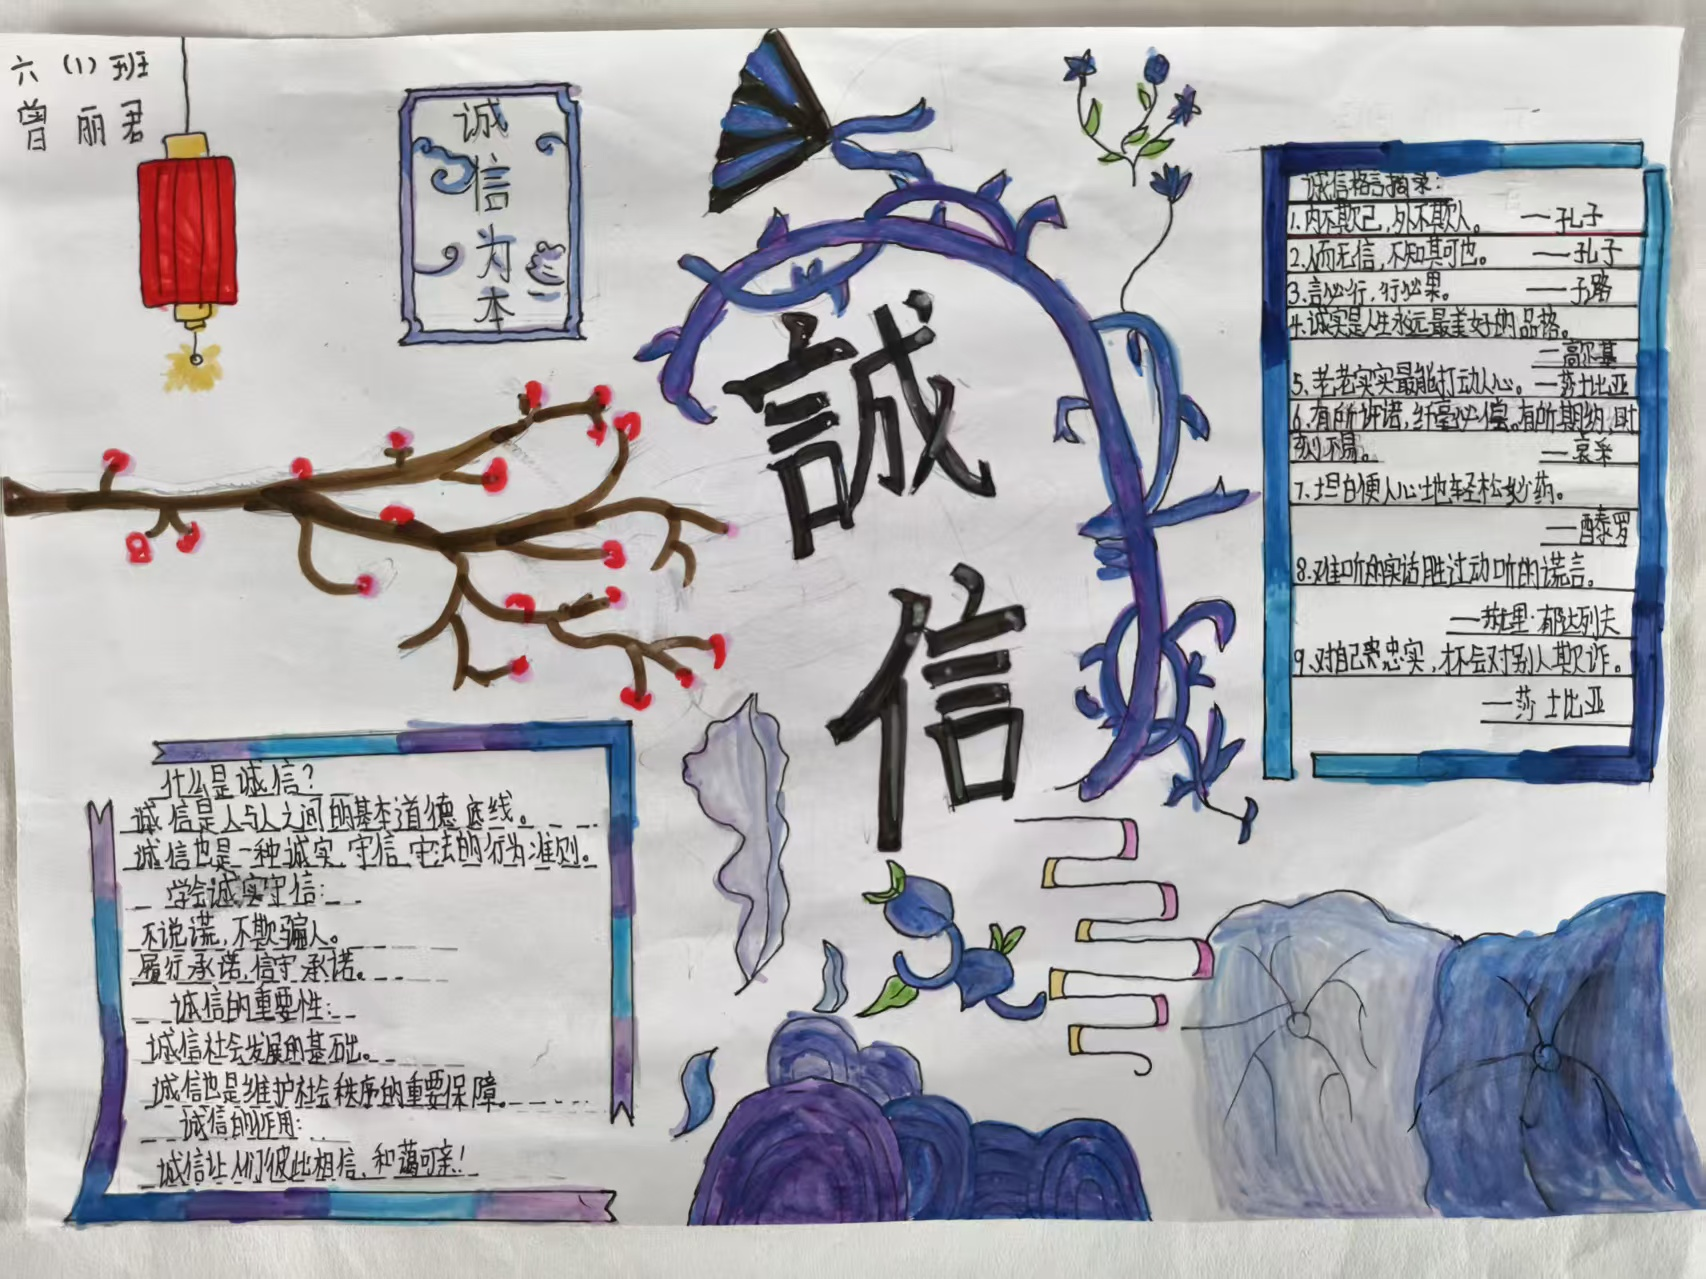 六（1）班
曾丽君
诚信为本
誠信
什么是诚信？
诚信是人与人之间的基本道德底线。
诚信也是一种诚实、守信、守法的行为准则。
学会诚实守信：
不说谎，不欺骗人。
履行承诺，信守承诺。
诚信的重要性：
诚信社会发展的基础。
诚信也是维护社会秩序的重要保障。
诚信的作用：
诚信让人们彼此相信，和蔼可亲！
诚信格言摘录：
1、内不欺己，外不欺人。 ——孔子
2、人而无信，不知其可也。 ——孔子
3、言必行，行必果。 ——子路
4、诚实是人生永远最美好的品格。
——高尔基
5、老老实实最能打动人心。——莎士比亚
6、有所许诺，纤毫必偿。有所期约，时
刻不易。 ——袁采
7、坦白使人心地轻松妙药。
——西泰罗
8、难听的实话胜过动听的谎言。
——苏里·郁达列夫
9、对自己忠实，才不会对别人欺诈。
——莎士比亚